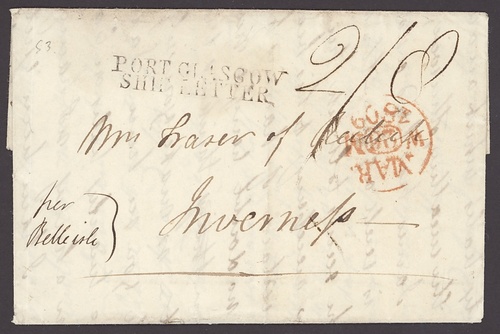 53
PORT GLASGOW
SHIP LETTER
2/8
Mrs Fraser of
Inverness
per
Belleisle
MAR
1809